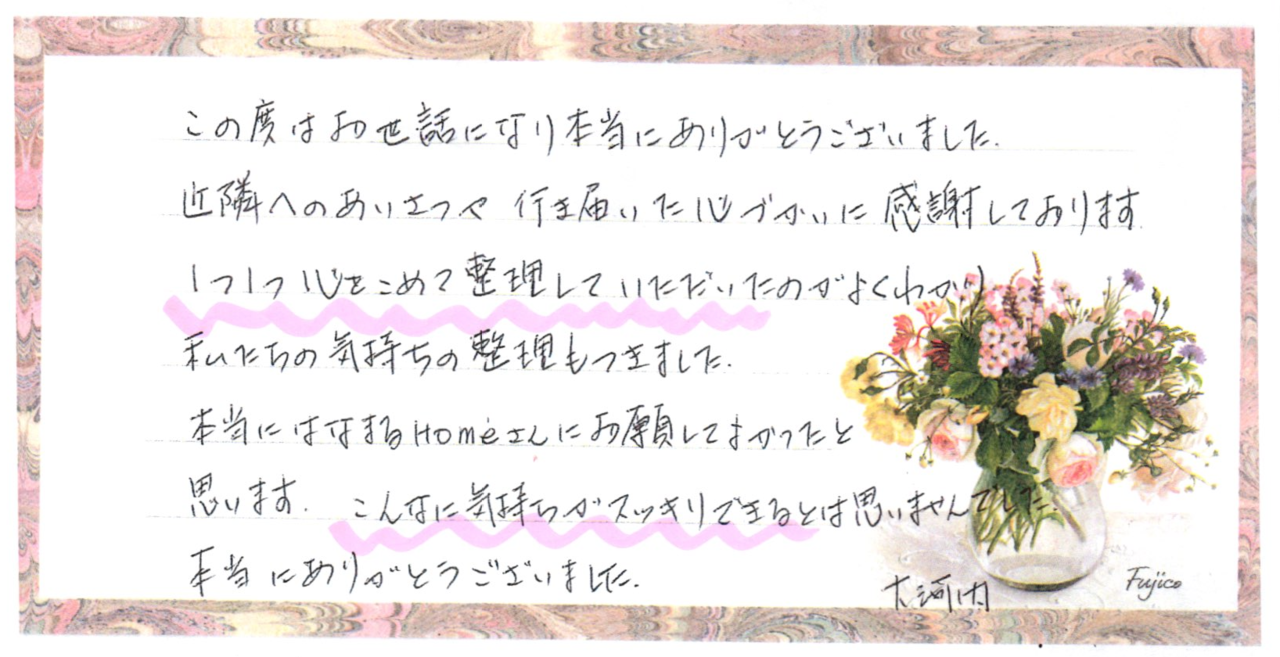 この度はお世話になり本当にありがとうございました.
近隣へのあいさつや 行き届いた心づかいに 感謝しております
1つ1つ心をこめて整理していただいたのがよくわかり
私たちの気持ちの整理もつきました.
本当にはなまるHomeさんにお願してよかったと
思います. こんなに気持ちがスッキリできるとは思いませんでした.
本当にありがとうございました.
大河内
Fujico